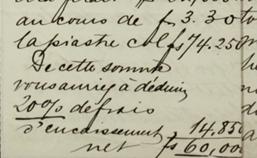 au cours de $ 3.30
la piastre col $ 74.250
De cette somme
vous auriez à déduire
20% de frais
d'encaissement 14.850
net $ 60,000